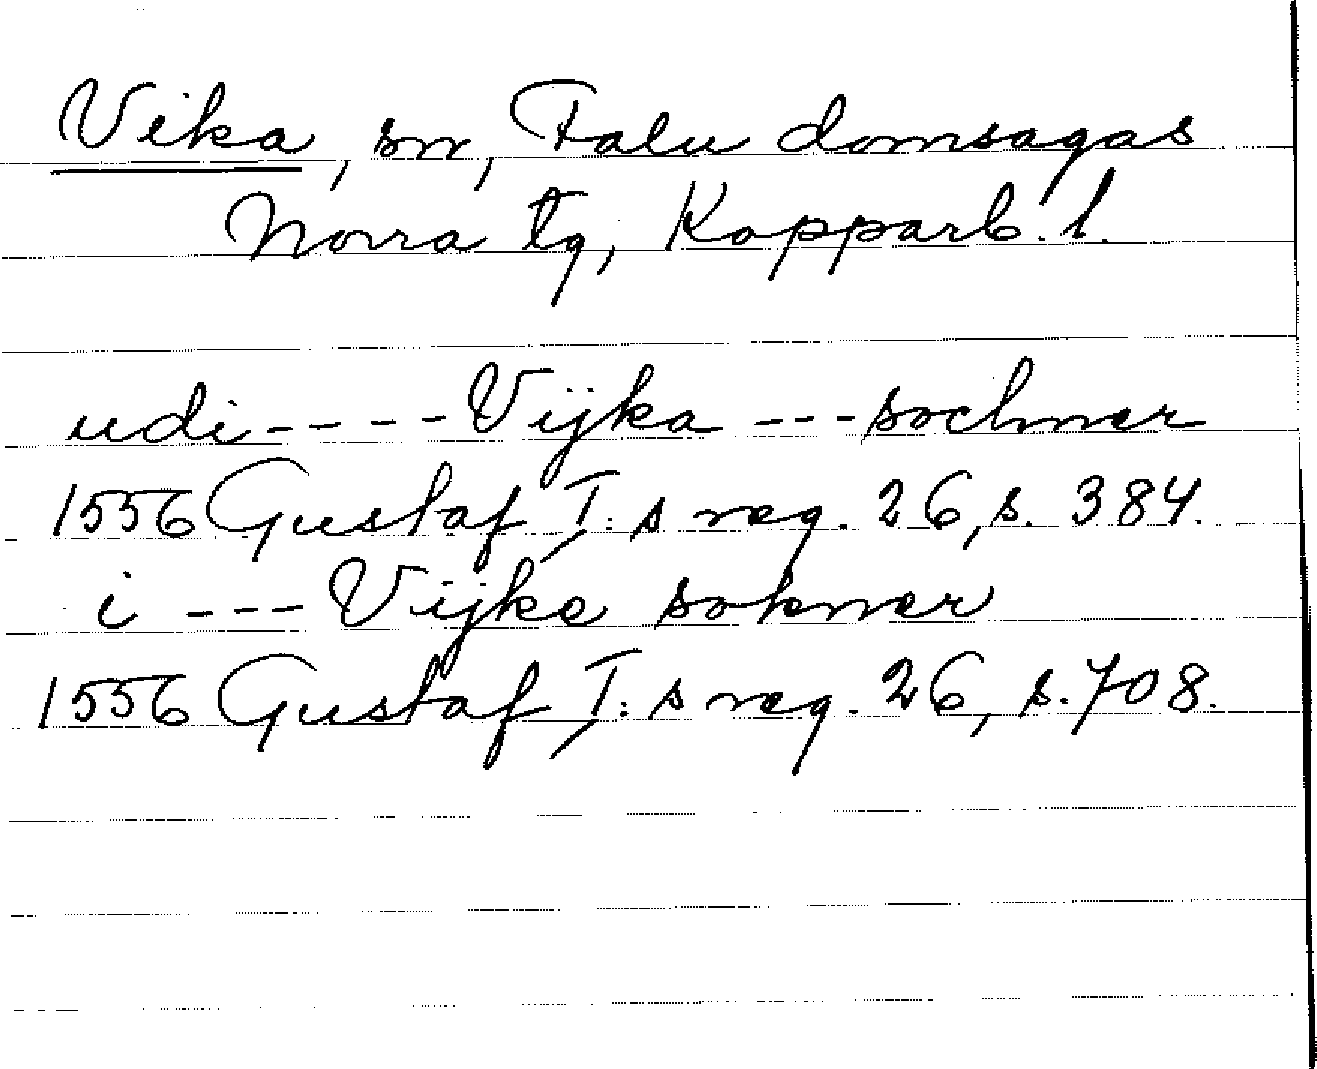 Vika, sn, Falu domsagas
Norra tg, Kopparb. l.
udi - - - - Vijka - - - sochner
1556 Gustaf I: s reg. 26, s. 384.
i - - - Vijke sokner
1556 Gustaf I: s reg. 26, s. 708.